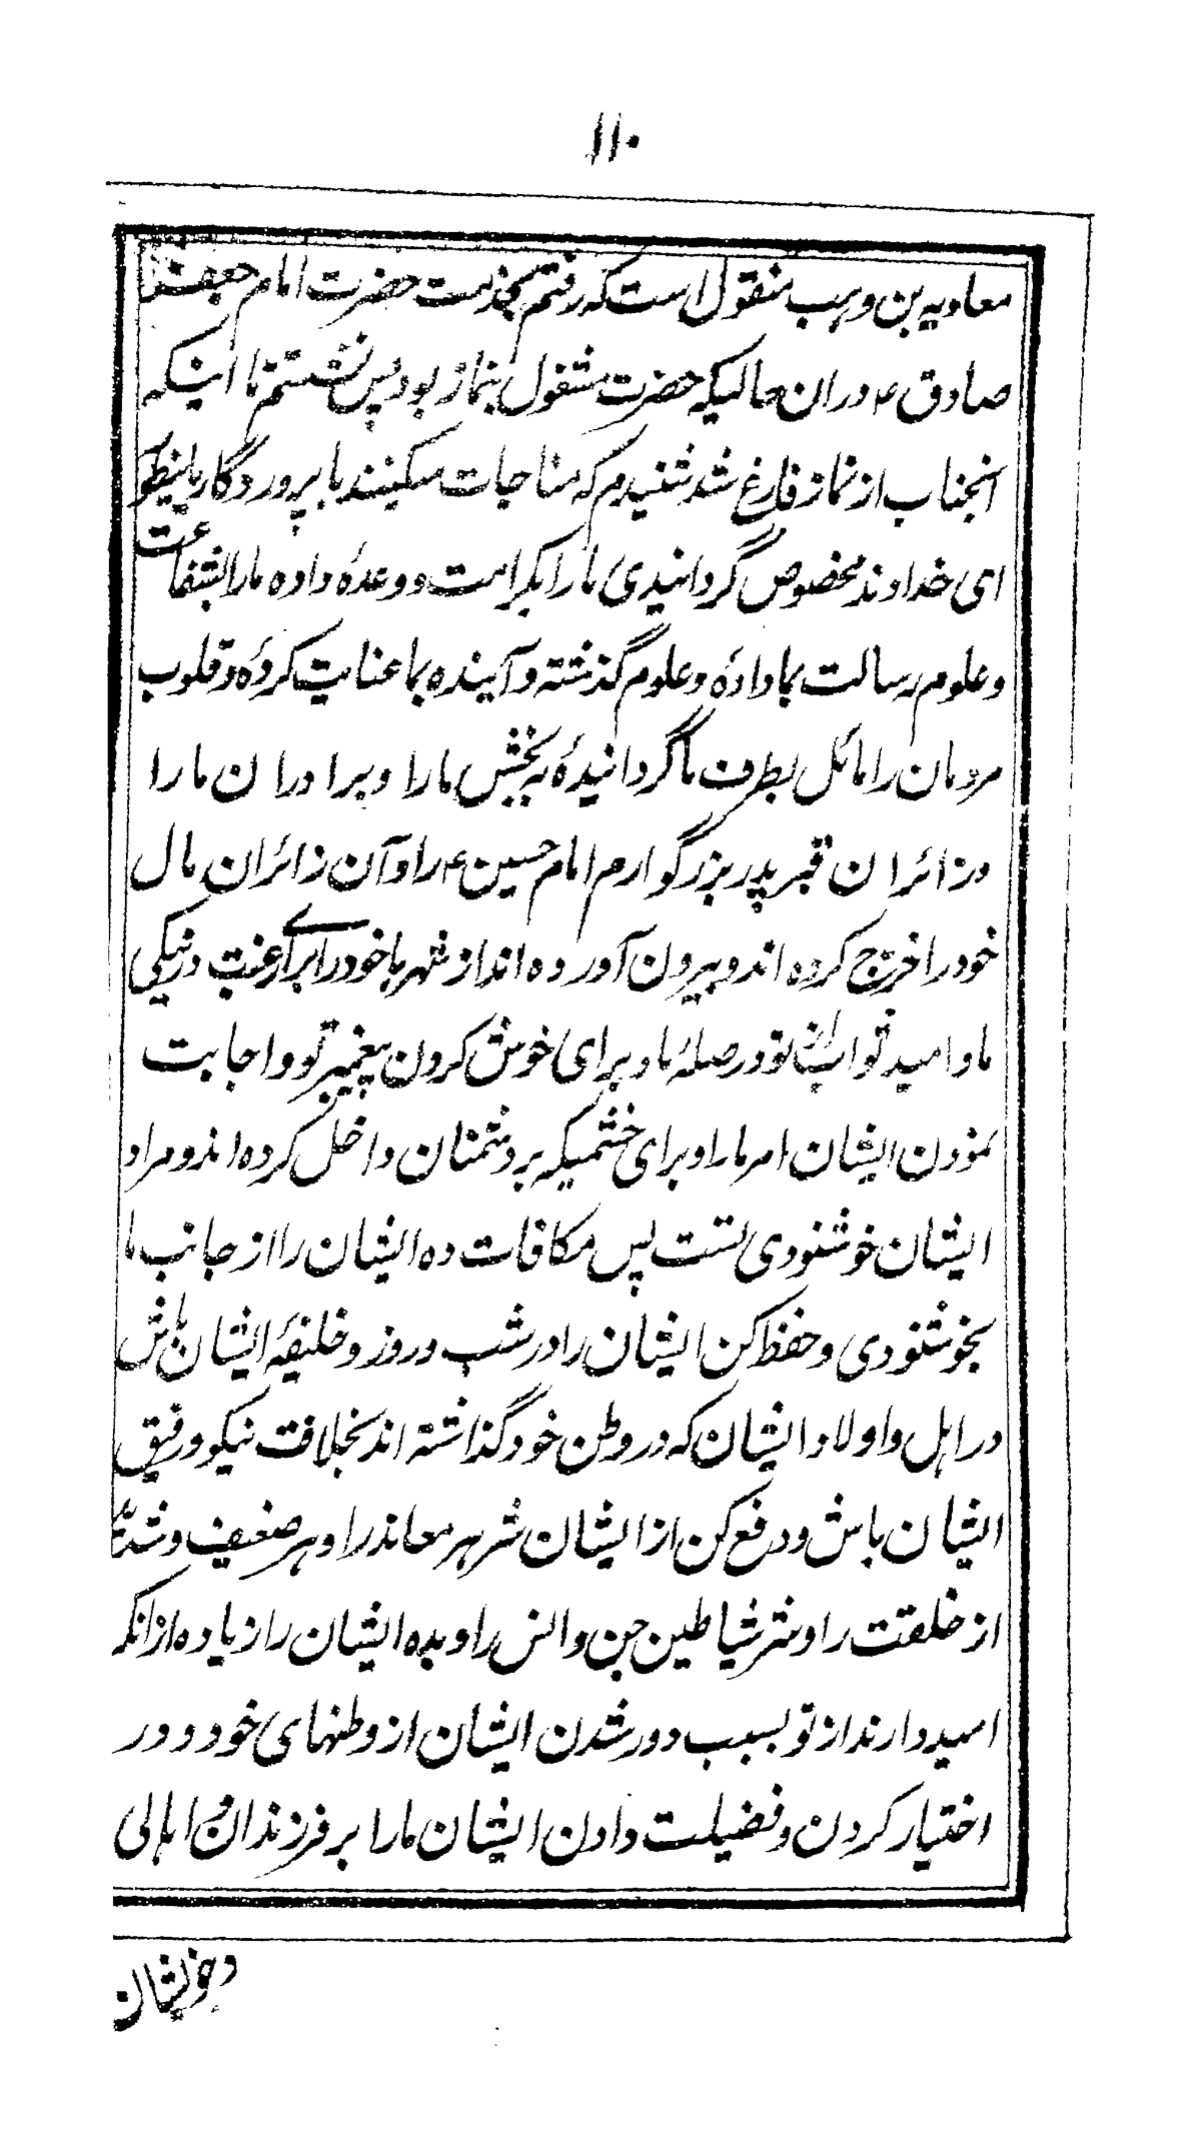 ۱۱۰
معاویه بن وهب منقول است که رفتم بخدمت حضرت امام جعفر
صادق ع دران حالیکه حضرت مشغول بنماز بود پس نشستم تا اینکه
انجناب از نماز فارغ شد شنیدم که مناجات میکنند با پروردگار باینطور
ای خداوند مخصوص گردانیدی مارا بکرامت و وعدۀ داده مارا بشفاعت
و علوم رسالت بما دادۀ و علوم گذشته و آینده بما عنایت کردۀ و قلوب
مردمان را مائل بطرف ما گردانیدۀ به بخش مارا و برادران مارا
و زائران قبر پدر بزرگوارم امام حسین ع را و آن زائران مال
خود را خرچ کرده اند و بیرون آورده اند از شهرها خود را برای رغبت در نیکی
ما و امید ثواب تو در صلۀ ما و برای خوش کردن پیغمبر تو و اجابت
نمودن ایشان امر مارا و برای خشمیکه بر دشمنان داخل کرده اند و مراد
ایشان خوشنودی تست پس مکافات ده ایشان را از جانب ما
بخوشنودی و حفظ کن ایشان را در شب و روز و خلیفۀ ایشان باش
در اهل و اولاد ایشان که در وطن خود گذاشته اند بخلافت نیکو و رفیق
ایشان باش و دفع کن از ایشان شر هر معاند را و هر ضعیف و
از خلقت را و شر شیاطین جن و انس را و بده ایشان را زیاده از انکه
امید دارند از تو بسبب دور شدن ایشان از وطنهای خود و در
اختیار کردن و فضیلت دادن ایشان مارا بر فرزندان و اهالی
و خویشان